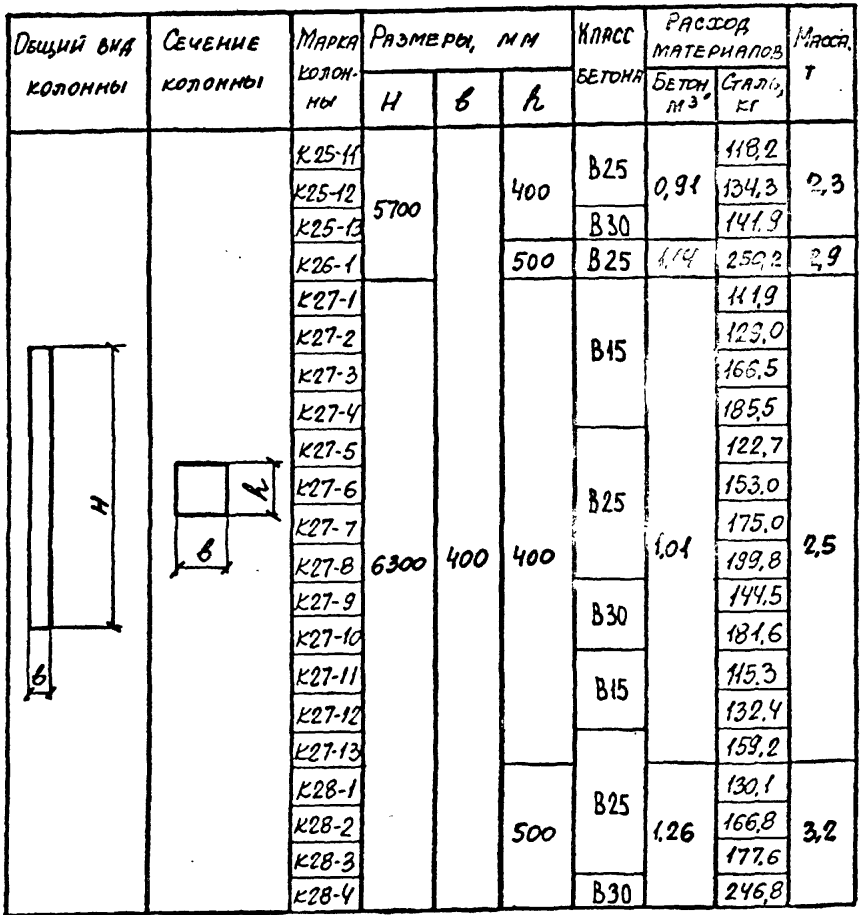 Общий вид колонны | Сечение колонны | Марка колон-ны | Размеры, мм | Класс бетона | Расход материалов | Масса, т
H | в | h | Бетон, м³ | Сталь, кг
К25-11 | 5700 | 400 | 400 | В25 | 0,91 | 118,2 | 2,3
К25-12 | 134,3
К25-13 | В30 | 141,9
К26-1 | 500 | В25 | 1,14 | 250,2 | 2,9
К27-1 | 6300 | 400 | В15 | 1,01 | 111,9 | 2,5
К27-2 | 129,0
К27-3 | 166,5
К27-4 | 185,5
К27-5 | В25 | 122,7
К27-6 | 153,0
К27-7 | 175,0
К27-8 | 199,8
К27-9 | В30 | 144,5
К27-10 | 181,6
К27-11 | В15 | 115,3
К27-12 | 132,4
К27-13 | В25 | 159,2
К28-1 | 500 | 1,26 | 130,1 | 3,2
К28-2 | 166,8
К28-3 | 177,6
К28-4 | В30 | 246,8
H
в
h
в